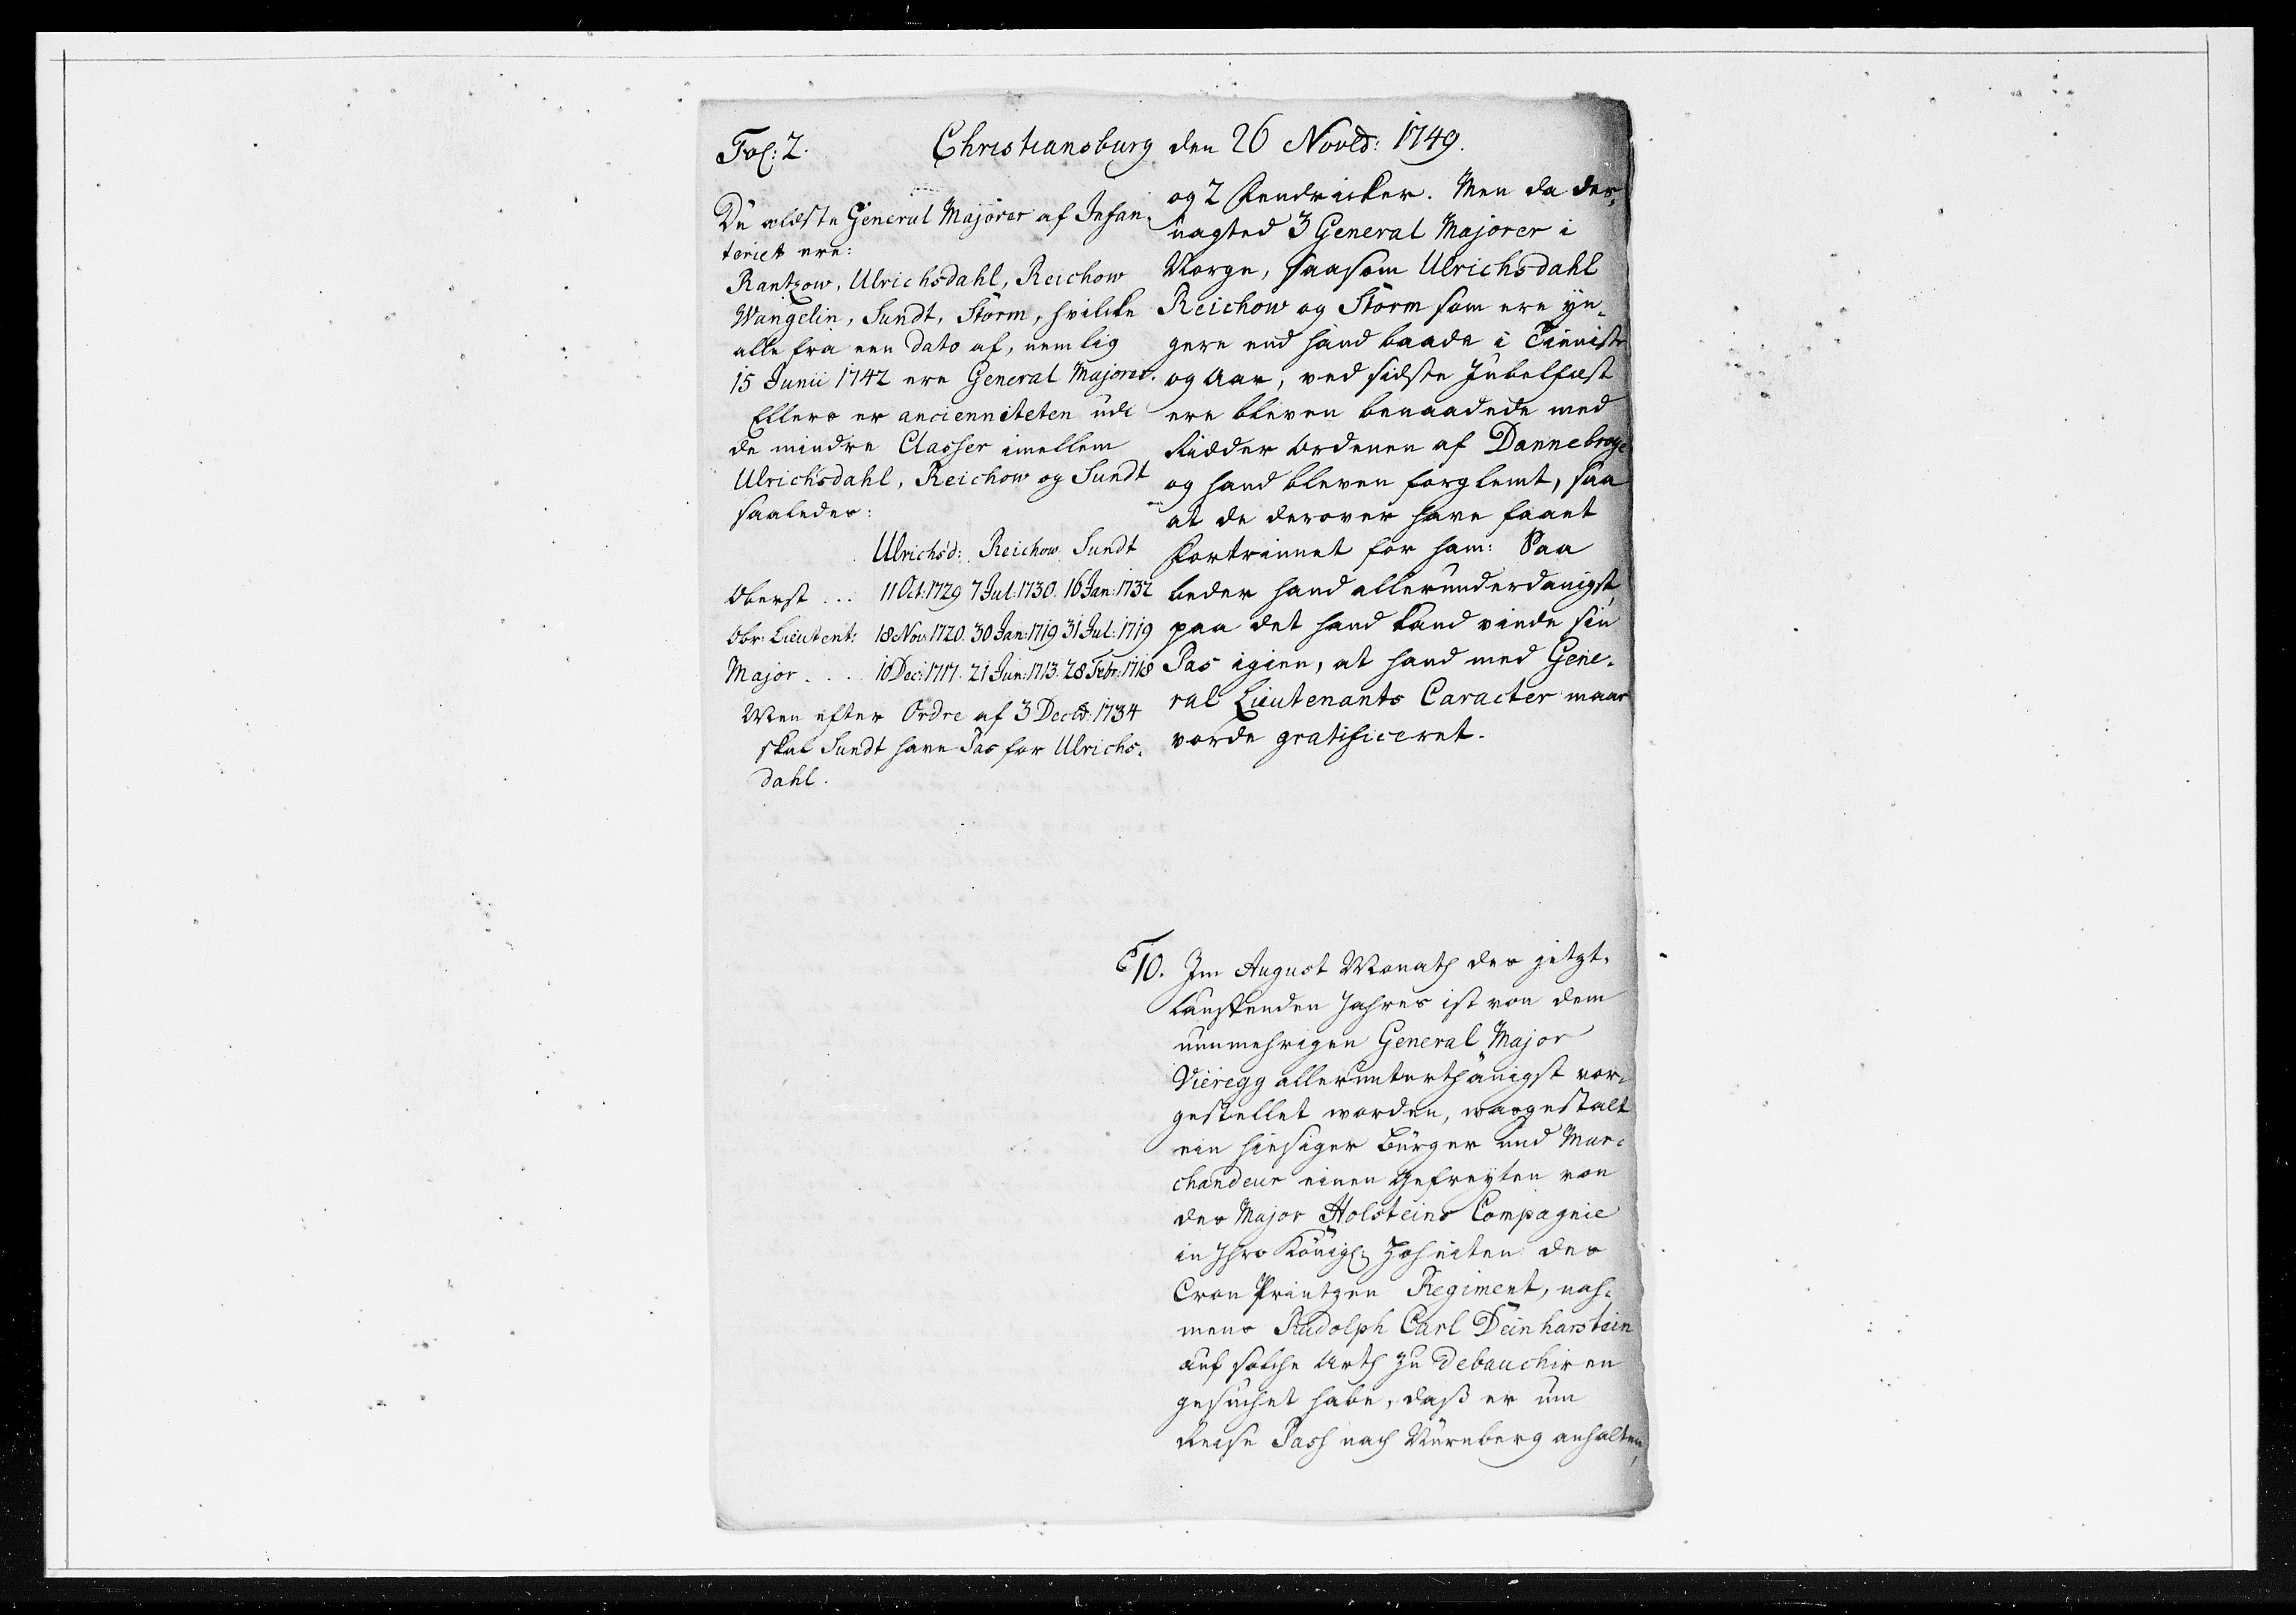 Fol: 2. Christiansburg den 26 Novbr: 1749.
De eldste General Majorer af Infan-
teriet ere:
Rantzow, Ulrichsdahl, Reichow
Wangelin, Sundt, Storm, hvilcke
alle fra een dato af, nemlig
15 Junii 1742 ere General Majorer.
Ellers er ancienniteten udi
de mindre Classer imellem
Ulrichsdahl, Reichow og Sundt
saaledes:
Ulrichsd: Reichow Sundt
Oberst ... 11 Oct: 1729 7 Jul: 1730. 16 Jan: 1732
Obr: Lieutent: 18 Nov: 1720. 30 Jan: 1719 31 Jul: 1719
Major .... 10 Dec: 1717. 21 Jun: 1713. 28 Febr: 1718
Men efter Ordre af 3 Decbr: 1734
skal Sundt have Pas for Ulrichs-
dahl.
og 2 Fendricker. Men da des-
uagted 3 General Majorer i
Norge, saasom Ulrichsdahl
Reichow og Storm som ere yn-
gere end hand baade i Tieniste
og Aar, ved sidste Jubelfest
ere bleven benaadede med
Ridder Ordenen af Dannebroge
og hand bleven forglemt, saa
at de derover have faaet
Fortrinnet for ham: Saa
beder hand allerunderdanigst,
paa det hand kand vinde sin
Pas igien, at hand med Gene-
ral Lieutenants Caracter maae
vorde gratificeret.
10. Im August Monath des jetzt-
lauffenden Jahres ist von dem
nunmehrigen General Major
Vieregg allerunterthänigst vor-
gestellet worden, wasgestalt
ein hiesiger Bürger und Mar-
chandeur einen Gefreyten von
des Major Holsteins Compagnie
in Ihro Königl: Hoheiten des
Cron Printzen Regiment, nah-
mens Rudolph Carl Deinharstein
auf solche Arth zu debauchiren
gesuchet habe, daß er um
Reise Pass nach Nürnberg anhalten,